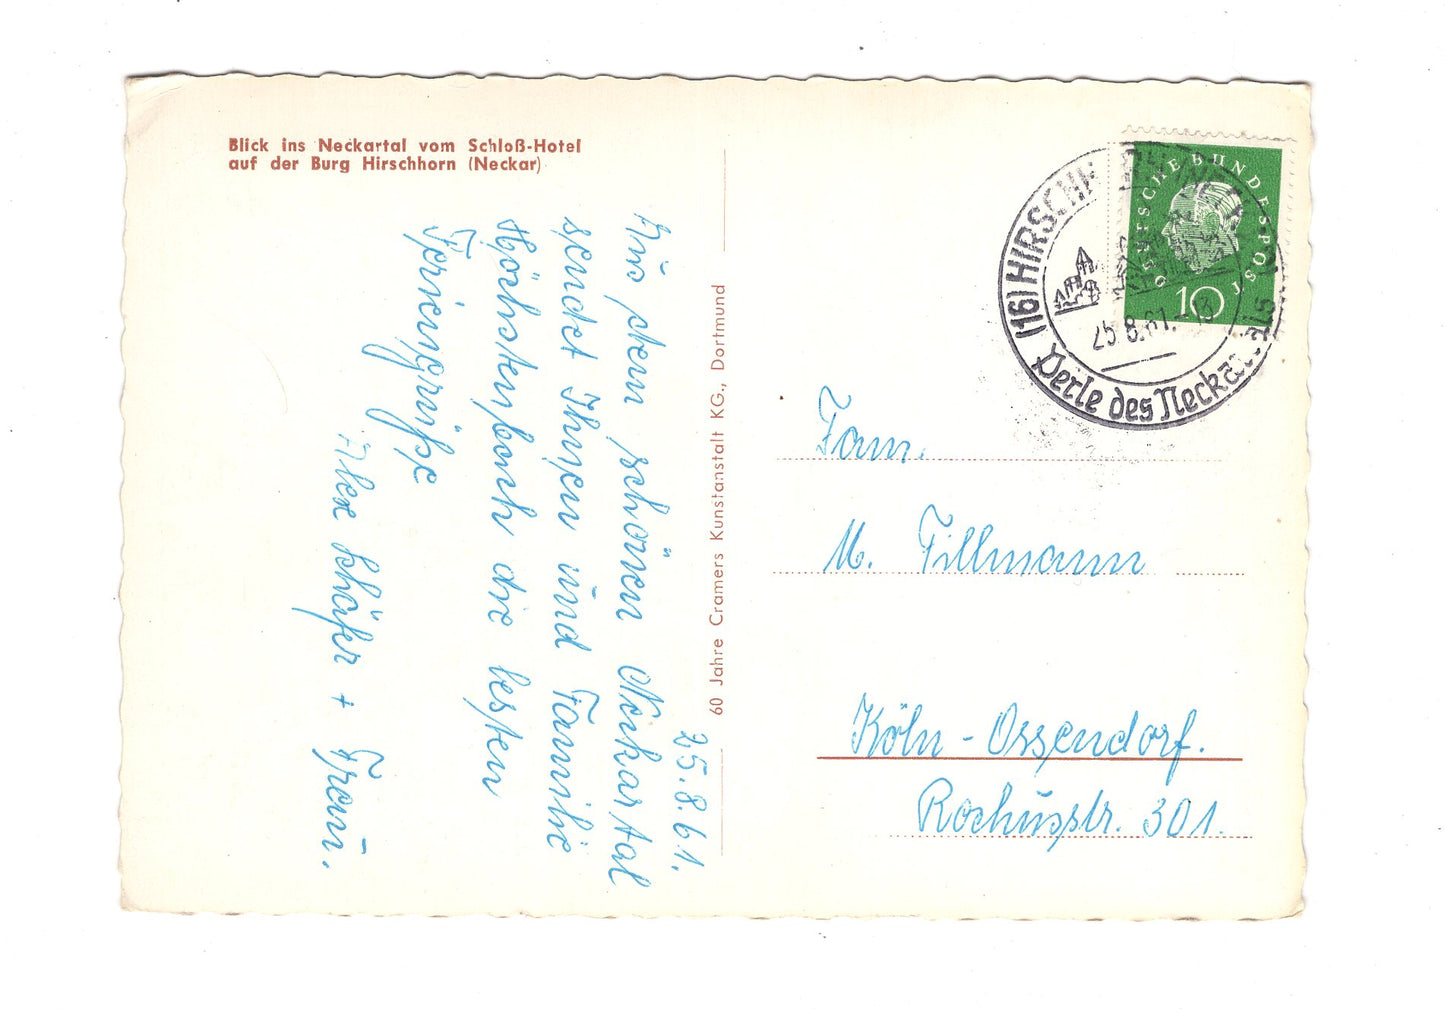 Blick ins Neckartal vom Schloß-Hotel
auf der Burg Hirschhorn (Neckar)
25.8.61.
Aus dem schönen Neckartal
sendet Ihnen und Familie
Höchstenbach die besten
Feriengrüße
Alex Schäfer + Frau.
60 Jahre Cramers Kunstanstalt KG., Dortmund
DEUTSCHE BUNDESPOST
10
(16) HIRSCHH
25.8.61.-13
Perle des Neckartals
Fam.
M. Tillmann
Köln-Ossendorf.
Rochusstr. 301.